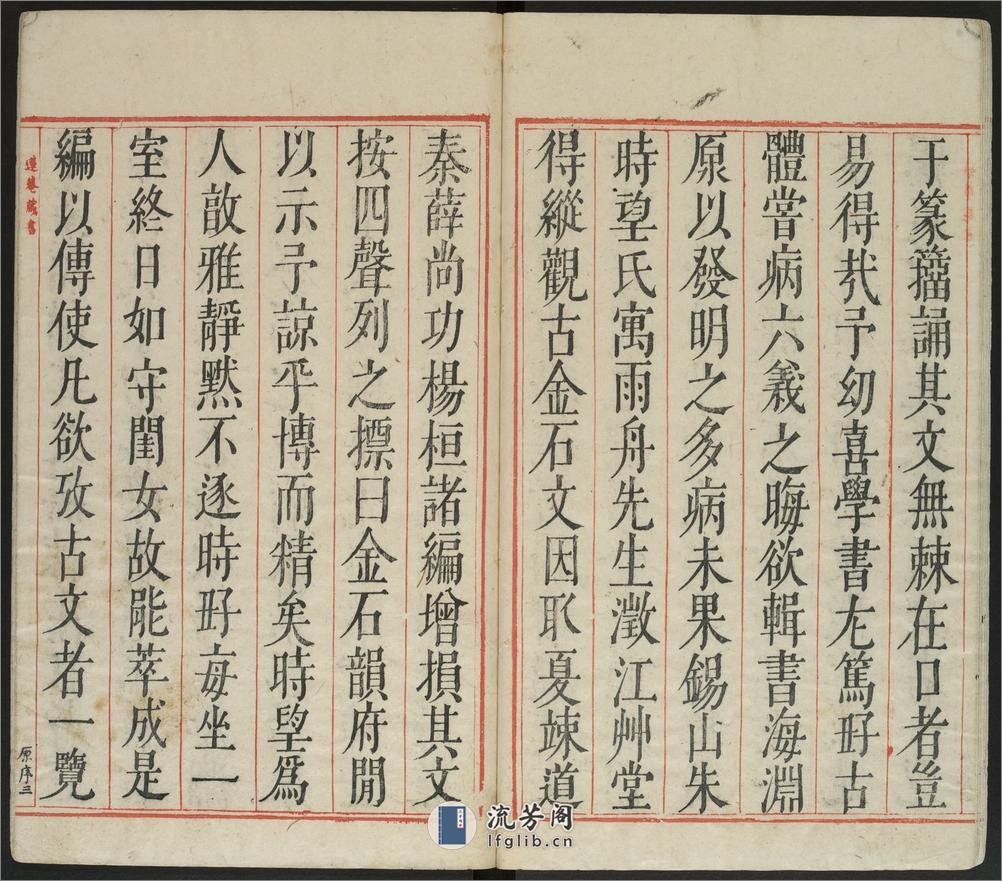 于篆籀誦其文無棘在口者豈
易得哉予幼喜學書尤篤好古
體嘗病六義之晦欲輯書海淵
原以發明之多病未果錫山朱
時望氏寓雨舟先生澂江艸堂
得縱觀古金石文因取夏竦道
秦薛尚功楊桓諸編增損其文
按四聲列之摽曰金石韻府閒
以示予諒乎博而精矣時望爲
人敔雅靜默不逐時好每坐一
室終日如守閨女故能萃成是
編以傳使凡欲攷古文者一覽
遵菴藏書
原序三
流芳阁
lfglib.cn